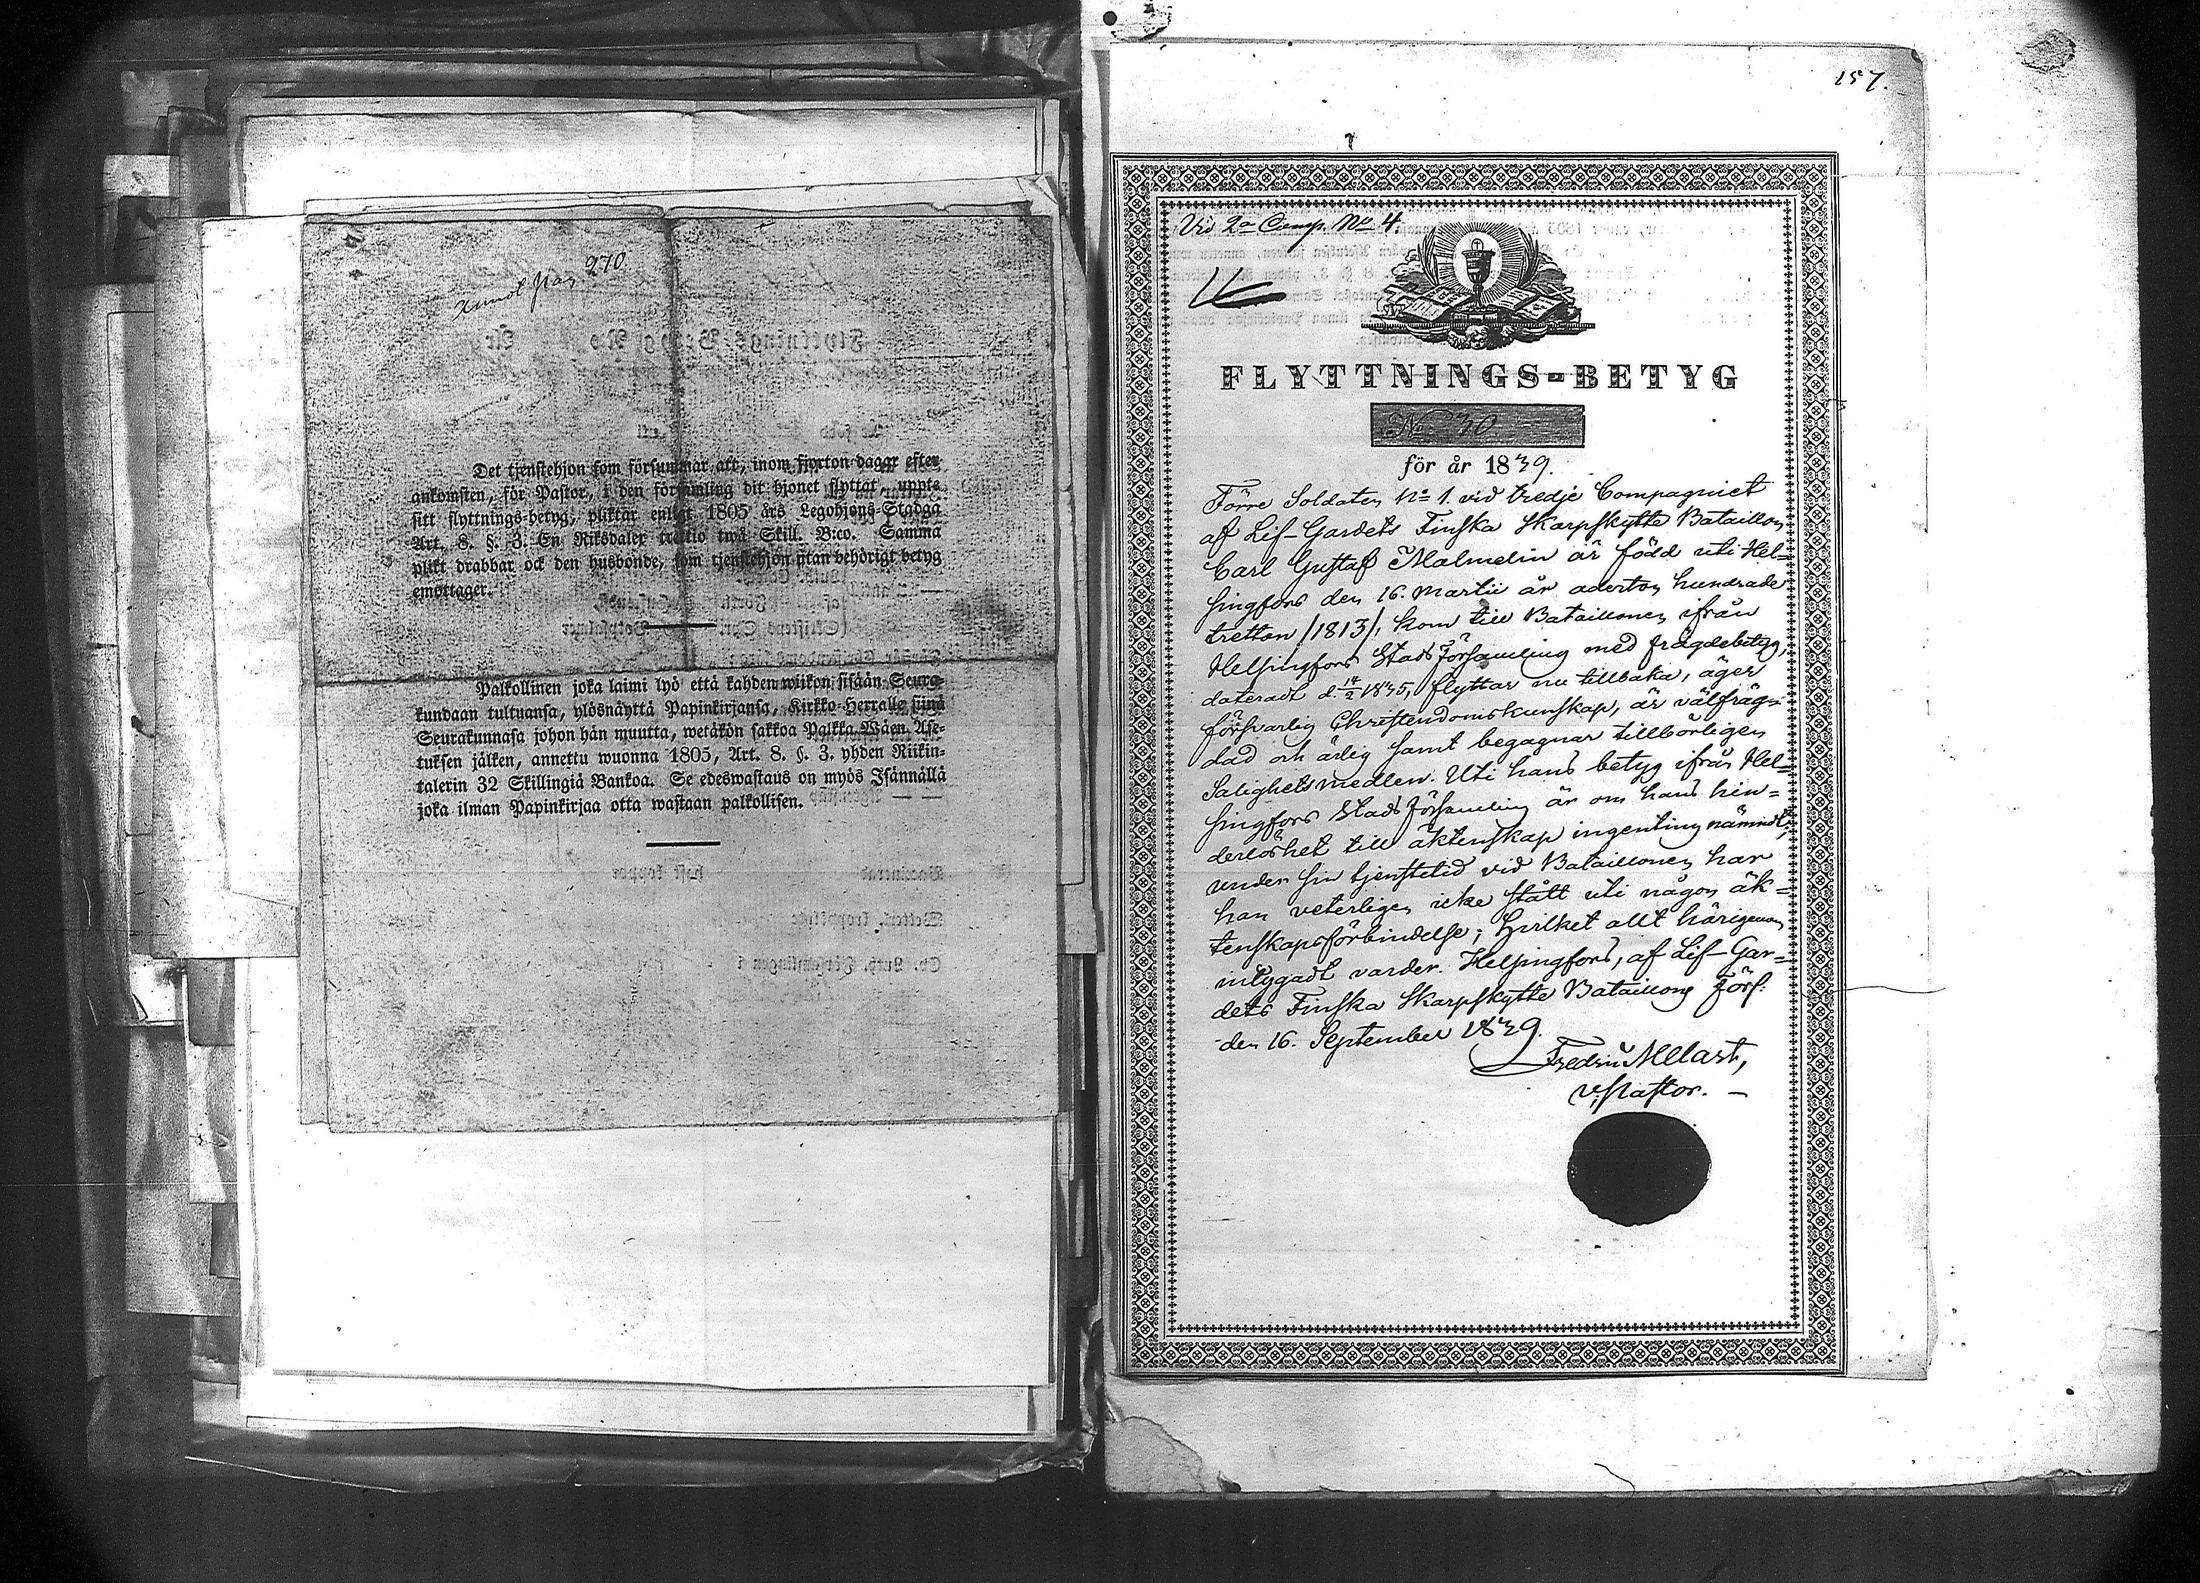 270
Det tjenstehjon som försummar att, inom fjorton dagar efter
ankomsten, för Pastor, i den församling dit hjonet flyttat, uppte
sitt flyttnings-betyg, pliktar enligt 1805 års Legohjons-Stadga
Art. 8. §. 3. En Riksdaler trettio twå Skill. B:co. Samma
plikt drabbar ock den husbonde, som tjenstehjon utan behörigt betyg
emottager.
Palkollinen joka laimi lyö että kahden wiikon sisään Seura-
kundaan tultuansa, ylösnäyttä Papinkirjansa, Kirkko-Herralle siinä
Seurakunnasa johon hän muutta, wetäkön sakkoa Palkka-Wäen Ase-
tuksen jälken, annettu wuonna 1805, Art. 8. §. 3. yhden Riikin-
talerin 32 Skillingiä Bankoa. Se edeswastaus on myös Isännällä
joka ilman Papinkirjaa otta wastaan palkollisen.
157.
Vid 2a Comp. No 4.
FLYTTNINGS-BETYG
No 30
för år 1839.
Förre Soldaten No 1. vid tredje Compagniet
af Lif-Gardets Finska Skarpskytte Bataillon
Carl Gustaf Malmelin är född uti Hel=
singfors den 16. Martii år aderton hundrade
tretton /1813/, kom till Bataillonen ifrån
Helsingfors Stads Församling med frägdebetyg,
dateradt d. 14/2 1835, flyttar nu tillbaka, äger
försvarlig Christendomskunskap, är välfräg=
dad och ärlig samt begagnar tillbörligen
Salighetsmedlen. Uti hans betyg ifrån Hel=
singfors Stads Församling är om hans hin=
derlöshet till äktenskap ingenting nämndt;
under sin tjenstetid vid Bataillonen har
han veterligen icke stått uti någon äk=
tenskapsförbindelse; hvilket allt härigenom
intygadt varder. Helsingfors, af Lif-Gar=
dets Finska Skarpskytte Bataillons Förs:
den 16. September 1839.
Mellart,
v. Pastor. –